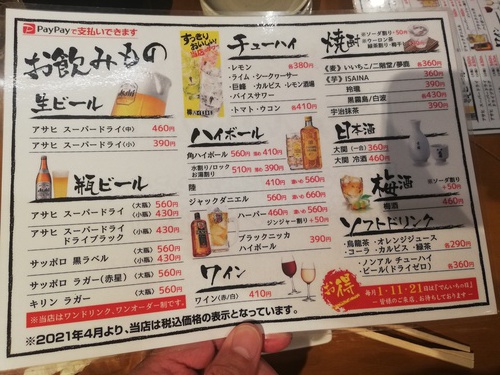 PayPayで支払いできます
お飲みもの
生ビール
アサヒ スーパードライ(中) 460円
アサヒ スーパードライ(小) 390円
瓶ビール
アサヒ スーパードライ (大瓶) 560円
(小瓶) 430円
アサヒ スーパードライ
ドライブラック (小瓶) 430円
サッポロ 黒ラベル (大瓶) 560円
(小瓶) 430円
サッポロ ラガー(赤星) (大瓶) 560円
キリン ラガー (大瓶) 560円
※当店はワンドリンク、ワンオーダー制です。
※2021年4月より、当店は税込価格の表示となっています。
すっきり
おいしい!
チューハイ
・レモン 各380円
・ライム・シークヮーサー
・巨峰・カルピス・レモン酒場
・バイスサワー
・トマト・ウコン 各410円
ハイボール
角ハイボール 560円 410円
水割り/ロック
お湯割り 510円 390円
陸 410円 濃いめ 560円
ジャックダニエル 560円 濃いめ 660円
ハーパー 460円 濃いめ 560円
ジンジャー割り +50円
ブラックニッカ
ハイボール 390円
ワイン
ワイン(赤/白) 410円
焼酎
※ソーダ割り +50円
※ウーロン茶
緑茶割り・梅干し
《麦》いいちこ/二階堂/夢鹿 各360円
《芋》ISAINA 360円
玲瓏 390円
黒霧島/白波 各430円
宇治抹茶 390円
日本酒
大関(一合) 360円
大関 冷酒 460円
梅酒
※ソーダ割り
+50円
梅酒 460円
ソフトドリンク
・烏龍茶・オレンジジュース
・コーラ・カルピス・緑茶 各290円
・ノンアル チューハイ
・ビール(ドライゼロ) 各360円
お得
毎月1・11・21日は『でんいちの日』
～皆様のご来店、お待ちしております～